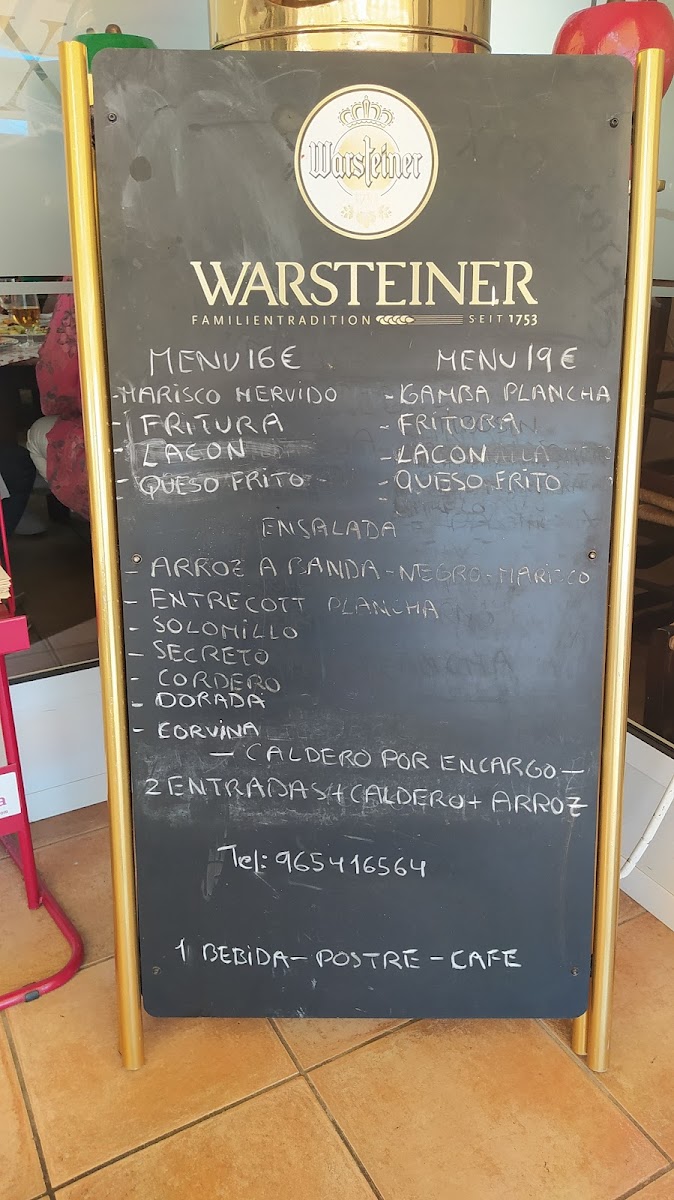 Warsteiner
WARSTEINER
FAMILIENTRADITION SEIT 1753
MENU 16€
- MARISCO HERVIDO
- FRITURA
- LACON
- QUESO FRITO
MENU 19€
- GAMBA PLANCHA
- FRITURA
- LACON
- QUESO FRITO
ENSALADA
- ARROZ A BANDA - NEGRO - MARISCO
- ENTRECOTT PLANCHA
- SOLOMILLO
- SECRETO
- CORDERO
- DORADA
- CORVINA
- CALDERO POR ENCARGO -
2 ENTRADAS + CALDERO + ARROZ
Tel: 965416564
1 BEBIDA - POSTRE - CAFE